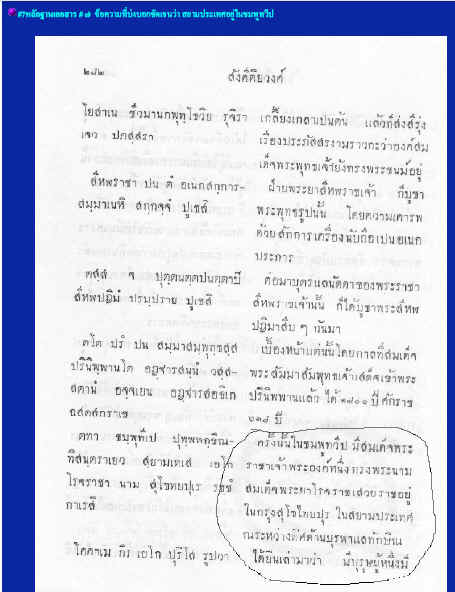 #7หลักฐานเอกสาร # ๗ ข้อความที่บ่งบอกชัดเจนว่า สยามประเทศอยู่ในชมพูทวีป
๒๘๒
สังคีติยวงศ์
โยสาเน ชีวมานกพุทฺโธวิย รุจิรา
เจว ปภสฺสรา
สีหพราชา ปน ตํ อเนกสกฺการ-
สมฺมาเนหิ สกฺกจฺจํ ปูเชสิ
ตสฺส จ ปุตฺตนตฺตปนตฺตาปิ
สีหฬปฏิมํ ปรมฺปราย ปูเชสิ
ตโต ปรํ ปน สมฺมาสมฺพุทฺธสฺส
ปรินิพฺพานโต อฏฺฐารสนฺนํ วสฺส-
สตานํ อจฺจเยน อฏฺฐารสอธิเก
ตทา ชมฺพุทีเป ปุพฺพทกฺขิณ-
ทิสนฺตราเยว สฺยามเทเส เอโก
โรจราชา นาม สุโขทยปุเร รชฺชํ
กาเรสิ
โคตาเม กิร เอโก ปุริโส รูปวา
เกลี้ยงเกลาเป็นต้น แล้วก็ส่งสีรุ่ง
เรืองประภัสสรงามราวกะว่าองค์สม
เด็จพระพุทธเจ้ายังทรงพระชนม์อยู่
ฝ่ายพระยาสีหพราชเจ้า ก็บูชา
พระพุทธรูปนั้น โดยความเคารพ
ด้วยสักการเครื่องนับถือเปนอเนก
ประการ
ต่อมาบุตร์แลนัดดาของพระราชา
สีหพราชเจ้านั้น ก็ได้บูชาพระสีหฬ
ปฏิมาสืบ ๆ กันมา
เบื้องหน้าแต่นั้นโดยกาลที่สมเด็จ
พระสัมมาสัมพุทธเจ้าเสด็จเข้าพระ
ปรินิพพานแล้ว ได้ ๑๘๐๐ ปี ศักราช
๖๑๘ ปี
ครั้งนั้นในชมพูทวีป มีสมเด็จพระ
ราชาเจ้าพระองค์หนึ่ง ทรงพระนาม
สมเด็จพระยาโรจราชเสวยราชอยู่
ในกรุงสุโขไทยปุร ในสยามประเทศ
ณระหว่างทิศด้านบุรพาแลทักษิณ
ได้ยินเล่ามาว่า มีบุรุษผู้หนึ่งมี